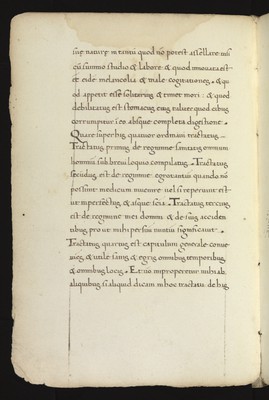 suę naturę in tantum quod nō potest assellare nisi
cū summo studio & labore. & quod innovata est
ei eidē melancolia & malę cogitationes. & qu
od appetit esse solitarius & timet mori: & quod
debilitatus est stomacus eius taliter quod cibus
corrumpitur in eo absque completa digestione.
Quare super his quatuor ordinavi tractatus.
Tractatus primus de regimine sanitatis omnium
hominū sub brevi loquio compilatus. Tractatus
secūdus est de regimine egrotantiū quando nō
possunt medicum invenire vel si reperiunt est
ut imperfectus & absque scīa. Tractatus tercius
est de regimine mei domini & de suis acciden
tibus prout mihi per suū nuntiū significavit.
Tractatus quartus est capitulum generale conve
niēs & utile sanis & egris omnibus temporibus
& omnibus locis. Et nō improperetur mihi ab
aliquibus si aliquid dicam in hoc tractatu de his